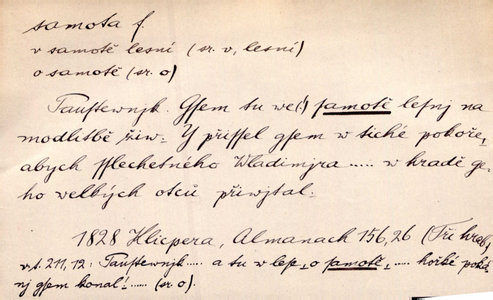 samota f.
v samotě lesní (sr. v, lesní)
o samotě (sr. o)
Paustewnjk. Gsem tu we(!) samotě lesnj na
modlitbě žiw. Y přissel gsem w tiché pokoře,
abych sslechetného Wladimjra ..... w hradě ge-
ho welbých otců přiwjtal.
1828 Klicpera, Almanach 156,26 (Tři hrab)
v.t. 211,12: Paustewnjk ..... a tu w lese, o samotě, ..... hořké poká-
nj gsem konal! ..... (sr. o).